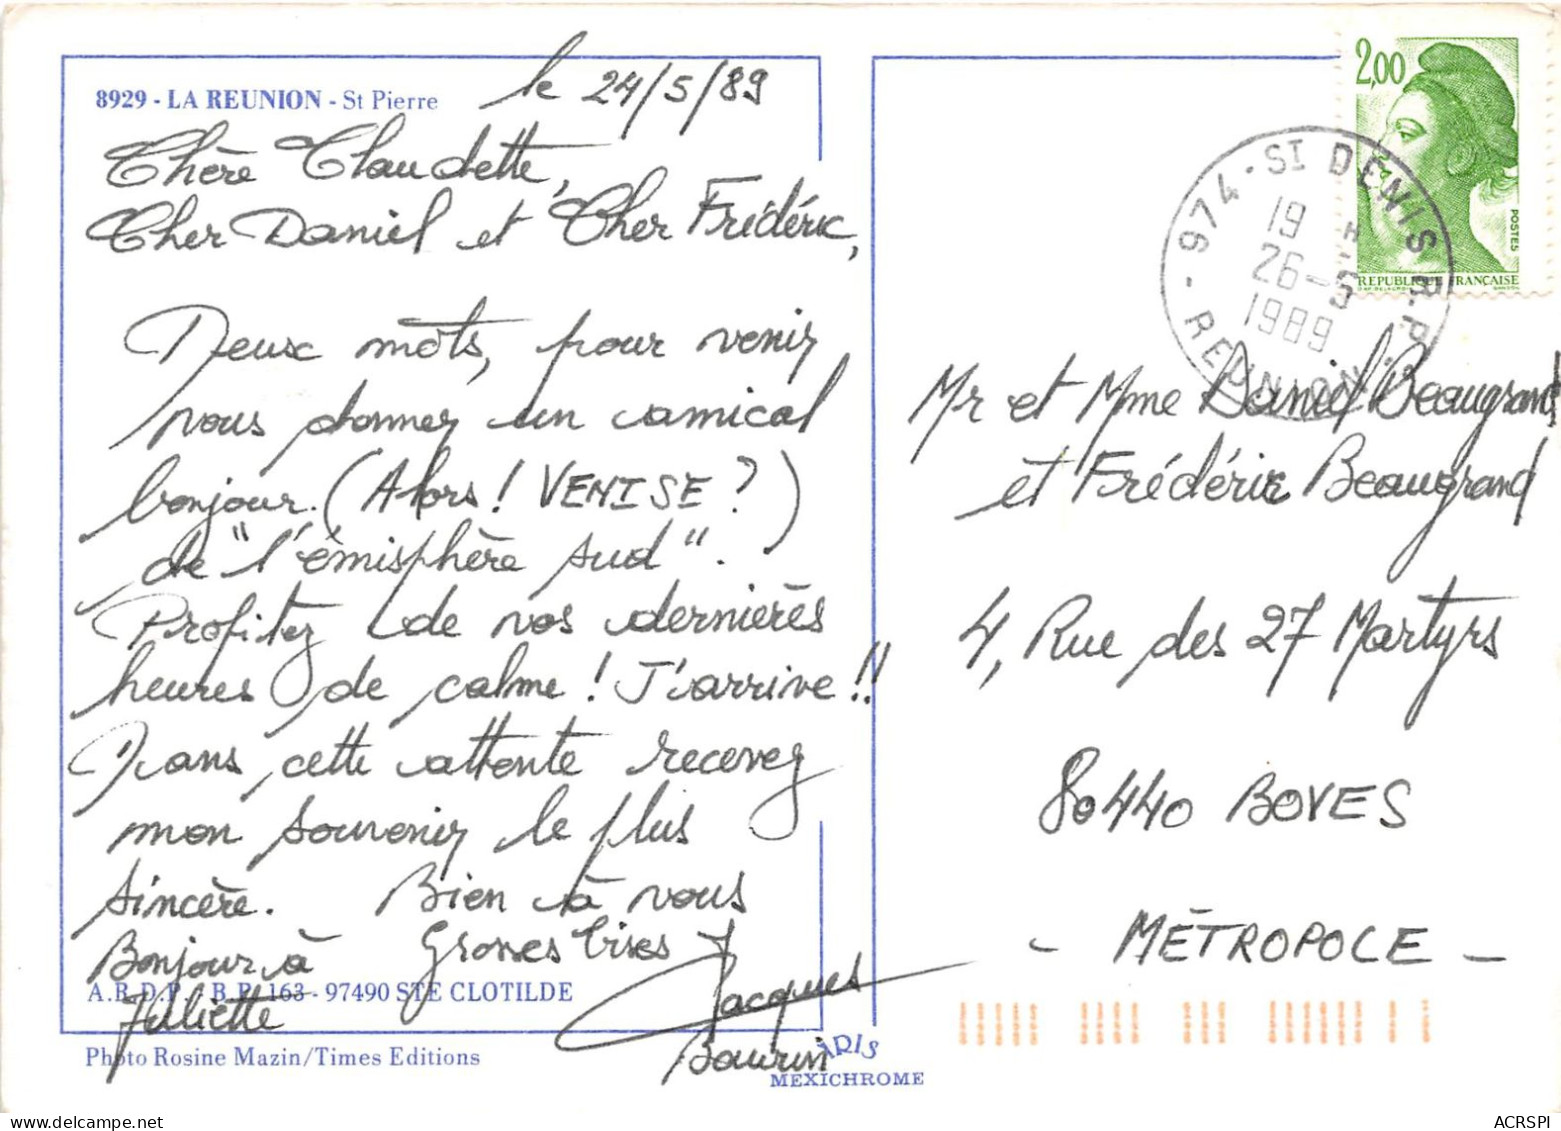 8929 - LA REUNION - St Pierre
le 24/5/89
Chère Claudette,
Cher Daniel et Cher Frédéric,
Deux mots, pour venir
vous donner un amical
bonjour. (Alors ! VENISE ?)
de "l'émisphère sud".
Profitez de vos dernières
heures de calme ! J'arrive !!
Dans cette attente recevez
mon souvenir le plus
sincère. Bien à vous
Bonjour à Grosses bises
Juliette Jacques
A.R.D.P. B.P. 163 - 97490 STE CLOTILDE
Photo Rosine Mazin/Times Editions
IRIS
MEXICHROME
2,00
POSTES
REPUBLIQUE FRANÇAISE
974 - ST DENIS R.P.
19 H
26-5
1989
REUNION
Mr et Mme Daniel Beaugrand
et Frédéric Beaugrand
4, Rue des 27 Martyrs
80440 BOVES
- MÉTROPOLE -
ACRSPI